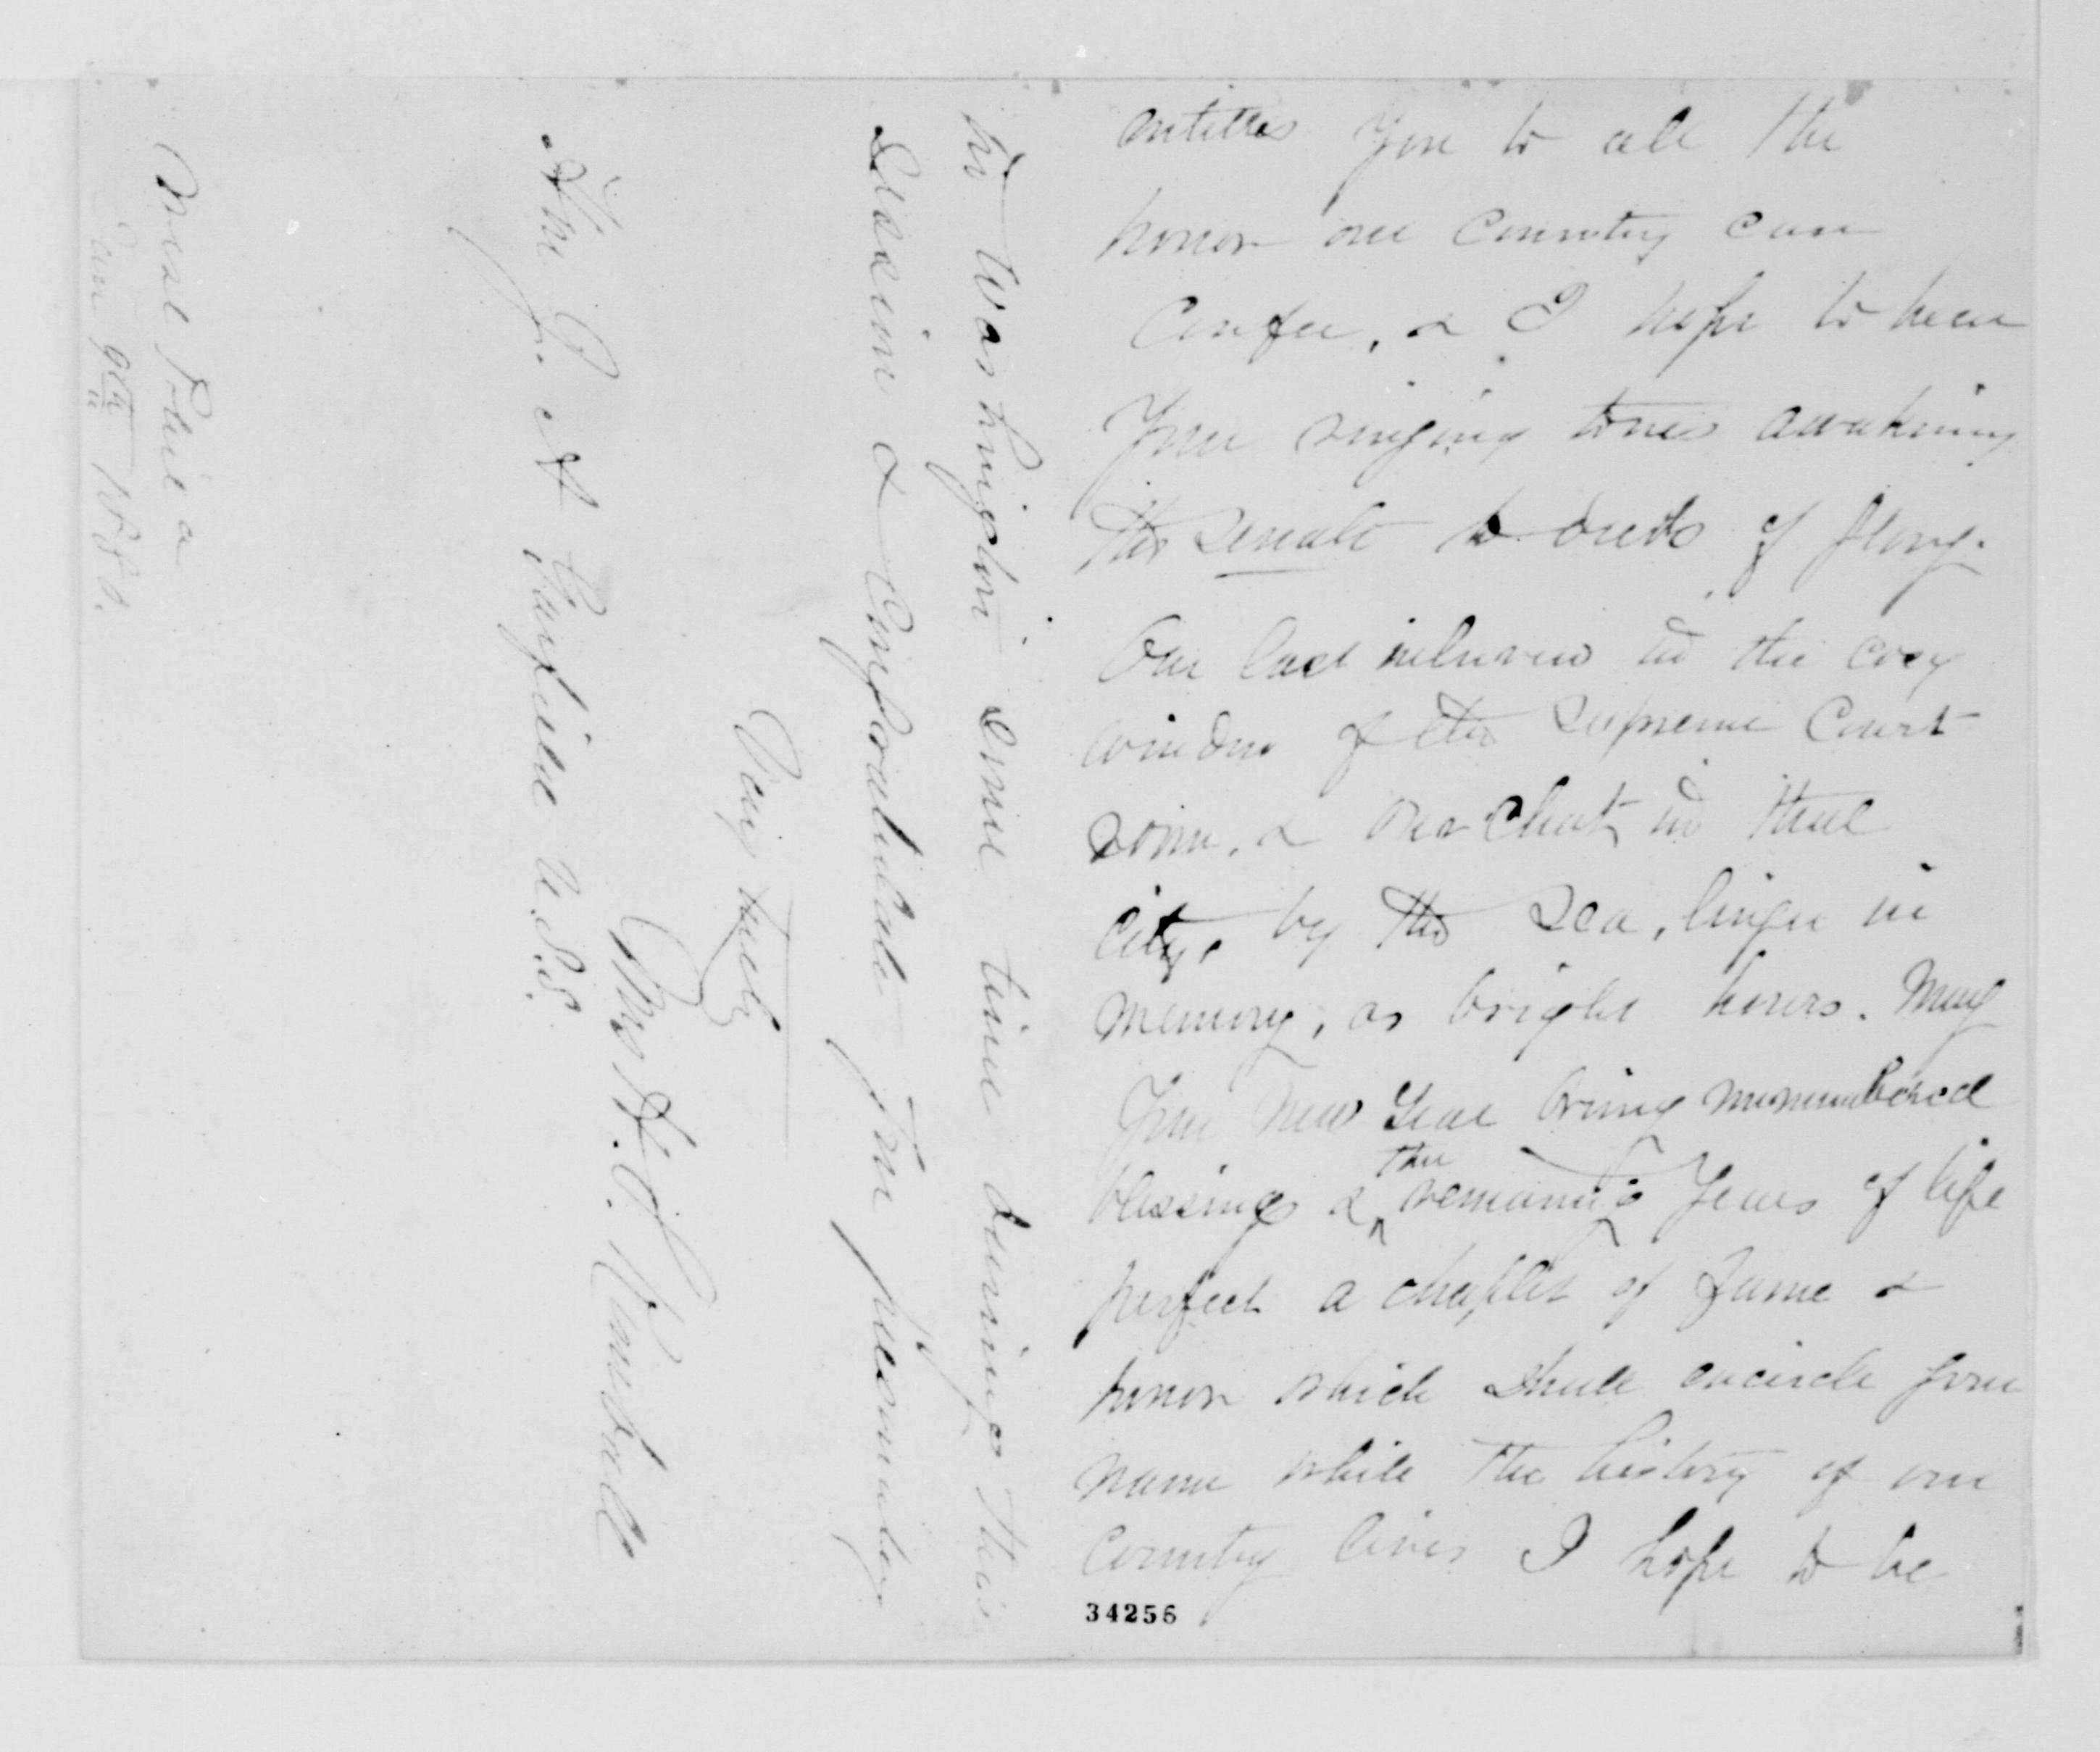 entitles you to all the
honor our Country can
Confer, & I hope to hear
Your ringing tones awakening
the Senate to deeds of glory.
Our last interview in the cosy
window of the Supreme Court
room, & our chat in that
City, by the Sea, linger in
memory, as bright hours. May
Your New Year bring unnumbered
blessings & the remaining Years of life
perfect a chapter of Fame &
honor which shall encircle your
name while the history of our
Country lives I hope to be
34256
in Washington some time during this
Session & Congratulate you personally
Very truly
Mrs H. C.
Hon J. A Garfield U.S.S.
West Point a
Jan 9th 1880.